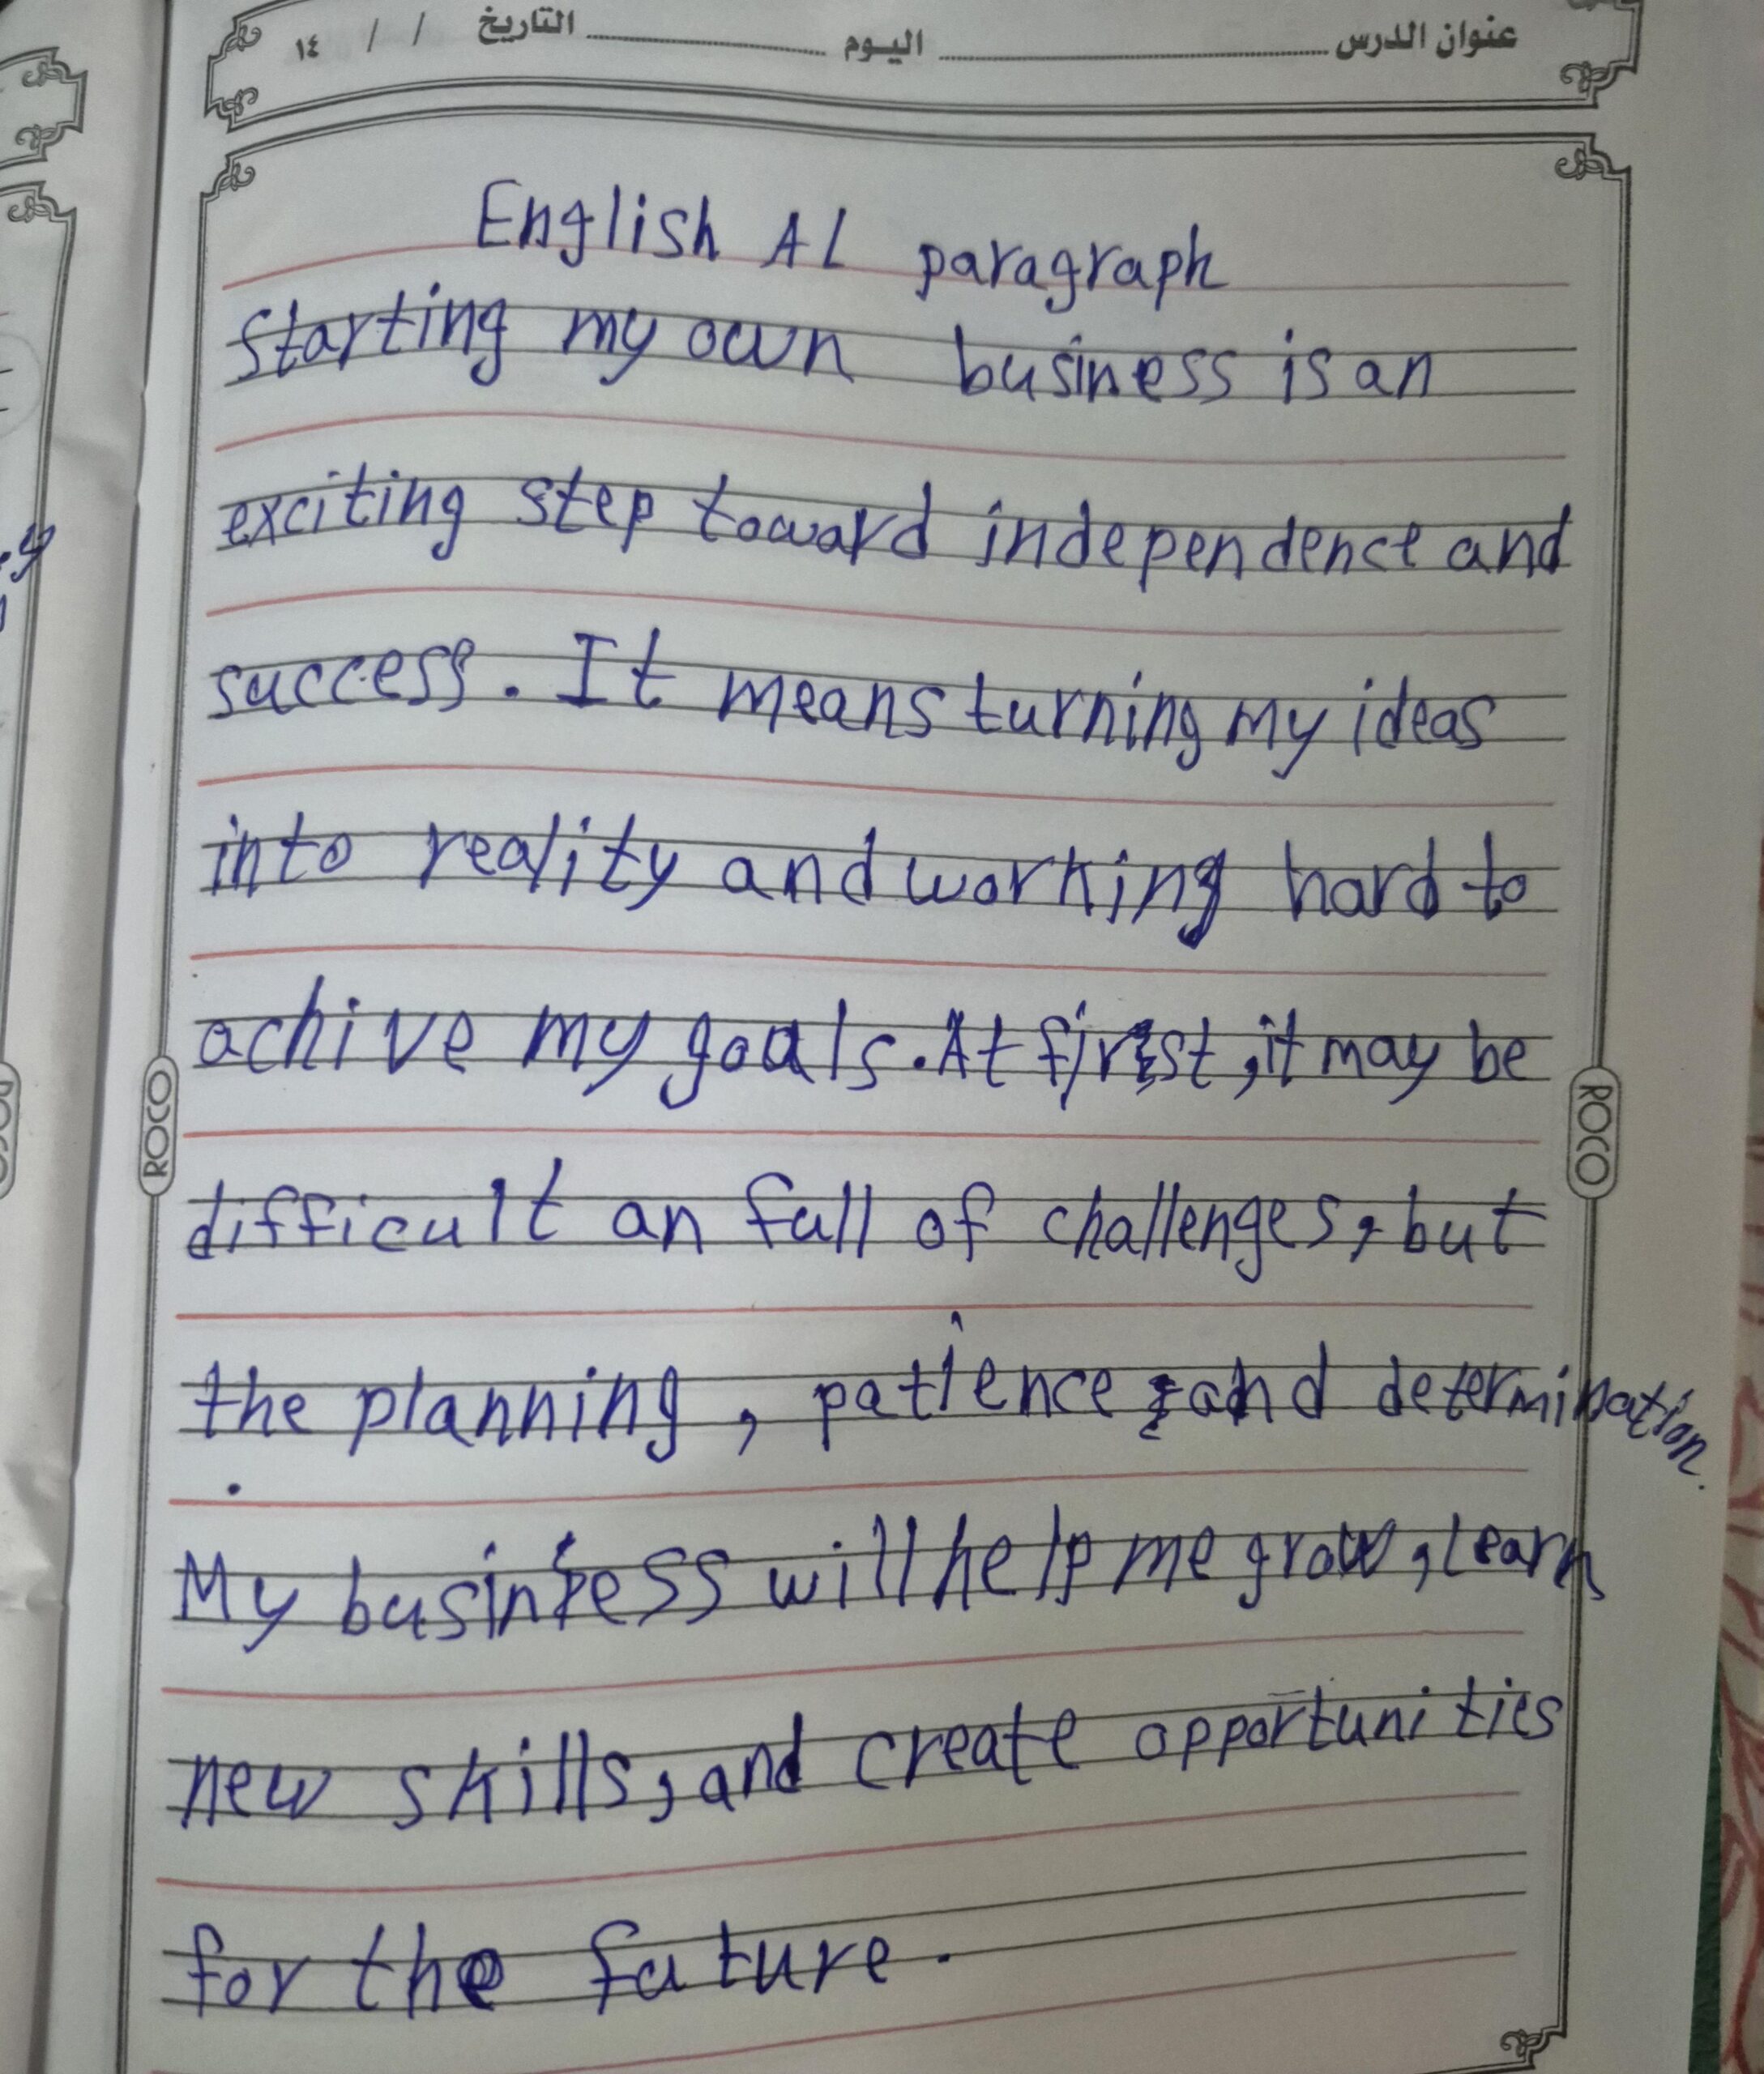 عنوان الدرس اليوم التاريخ / / ١٤
English AL paragraph
Starting my own business is an
exciting step toward independence and
success. It means turning my ideas
into reality and working hard to
achive my goals. At first, it may be
difficult an full of challenges, but
the planning, patience, and determination.
My business will help me grow, learn
new skills, and create opportunities
for the future.
ROCO
ROCO